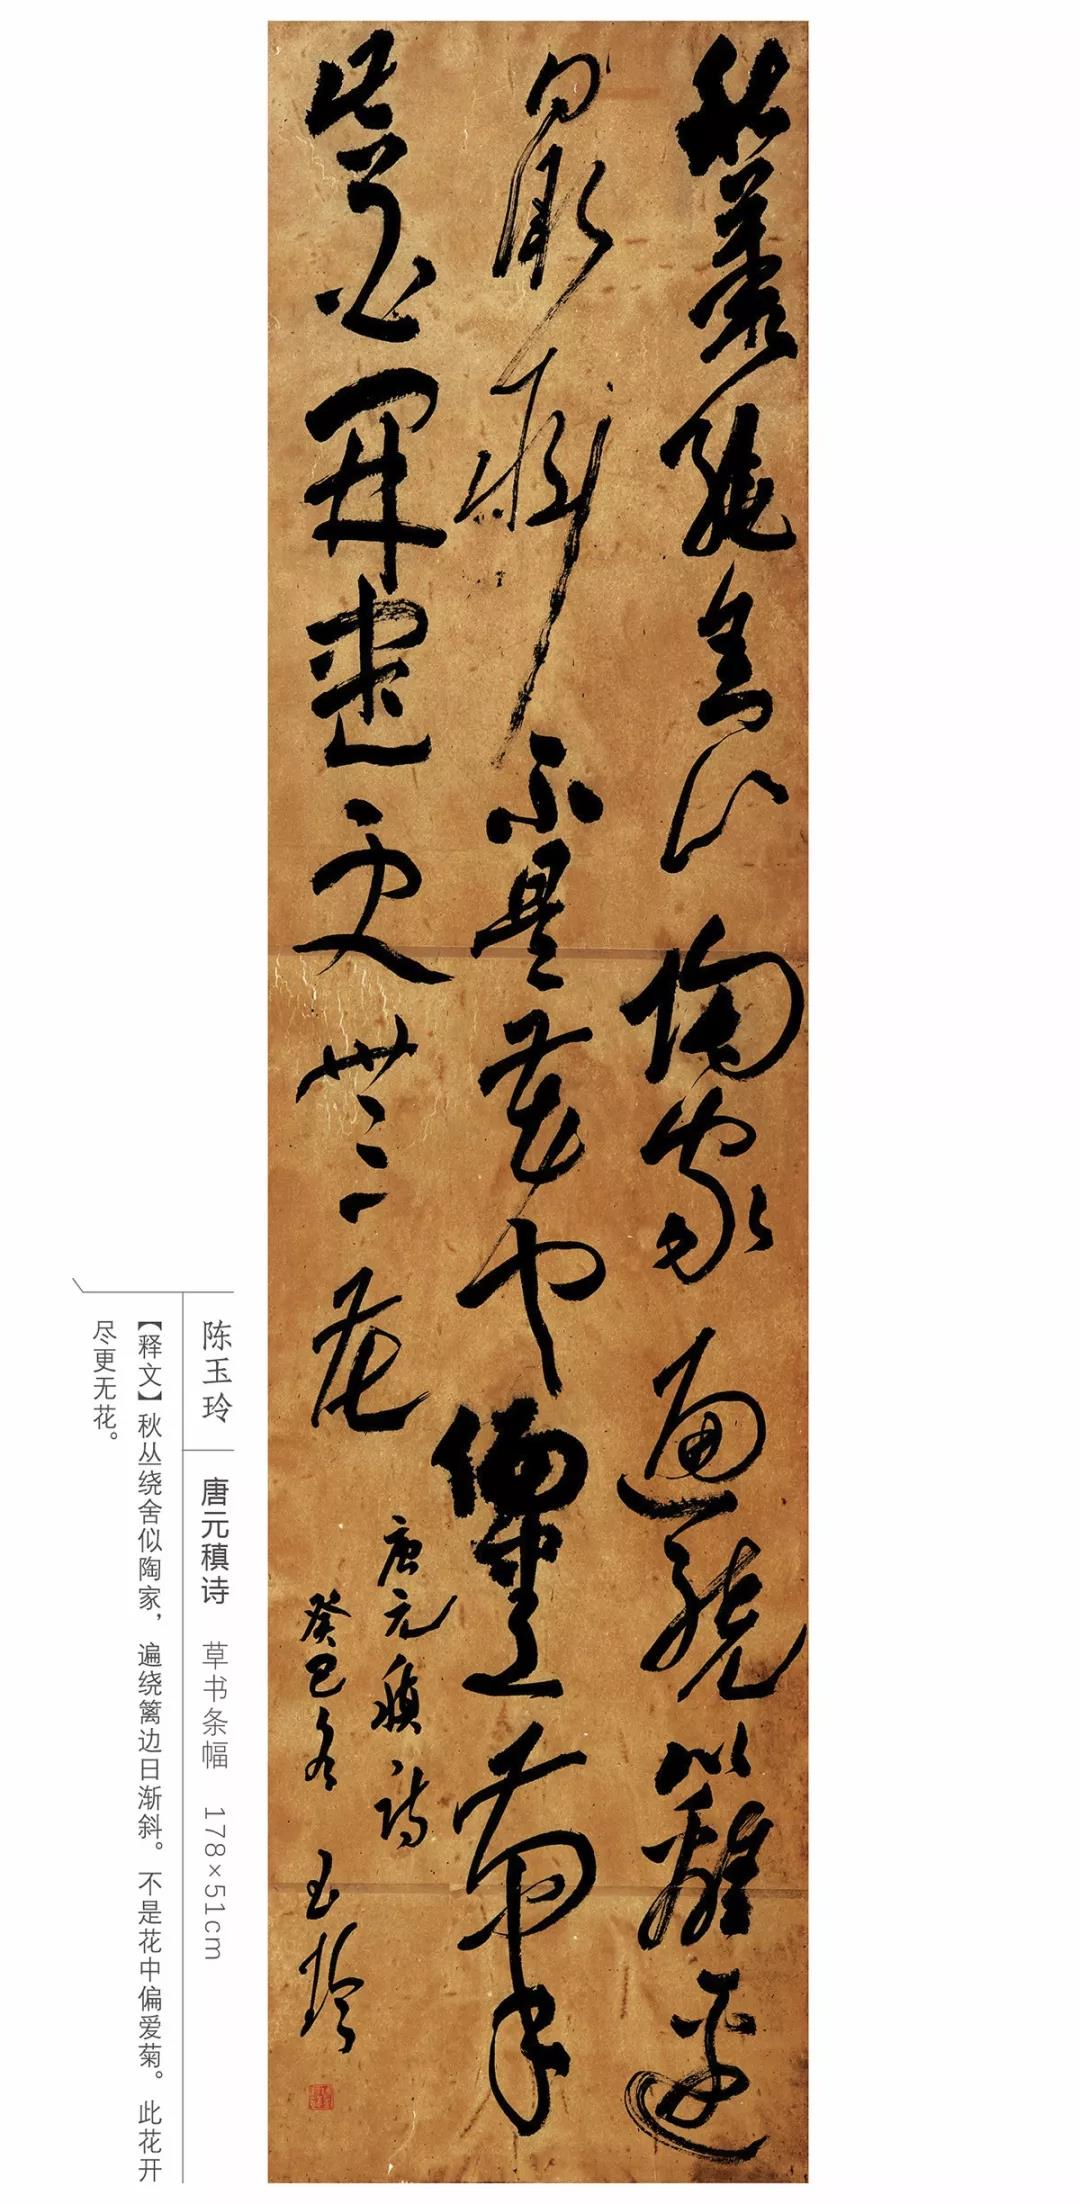 秋叢繞舍似陶家遍繞籬邊
日漸斜不是花中偏愛菊
此花開盡更無花
唐元稹詩
癸巳冬 玉玲
陈玉玲 唐元稹诗 草书条幅 178×51cm
【释文】秋丛绕舍似陶家，遍绕篱边日渐斜。不是花中偏爱菊。此花开
尽更无花。